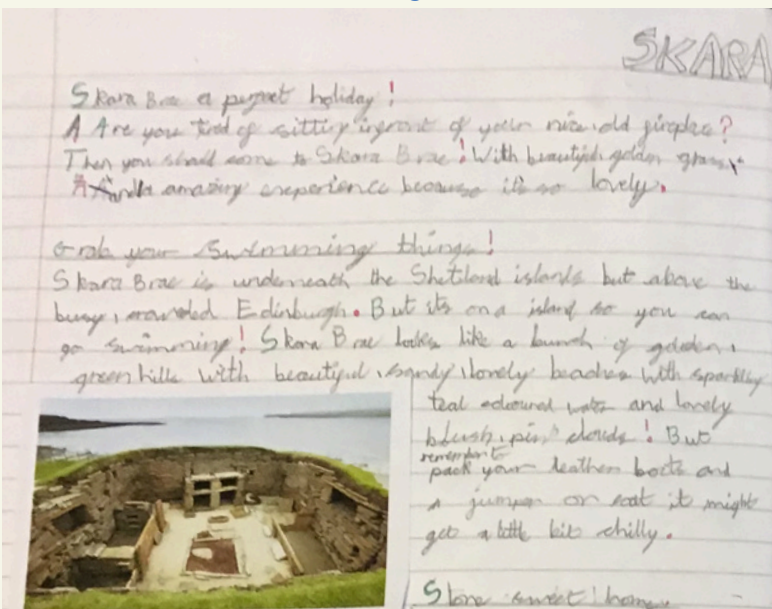 SKARA
Skara Brae a perfect holiday!
A Are you tired of sitting infront of your nice old fireplace?
Then you shall come to Skara Brae! With beautiful golden grass,
amazing experience because it's so lovely.
Grab your swimming things!
Skara Brae is underneath the Shetland islands but above the
busy, crowded Edinburgh. But its on a island so you can
go swimming! Skara Brae looks like a bunch of golden,
green hills with beautiful, sandy, lovely beaches with sparkling
teal coloured water and lovely
blush, pink clouds! But
remember
pack your leather boots and
a jumper or coat it might
get a little bit chilly.
Stone sweet home